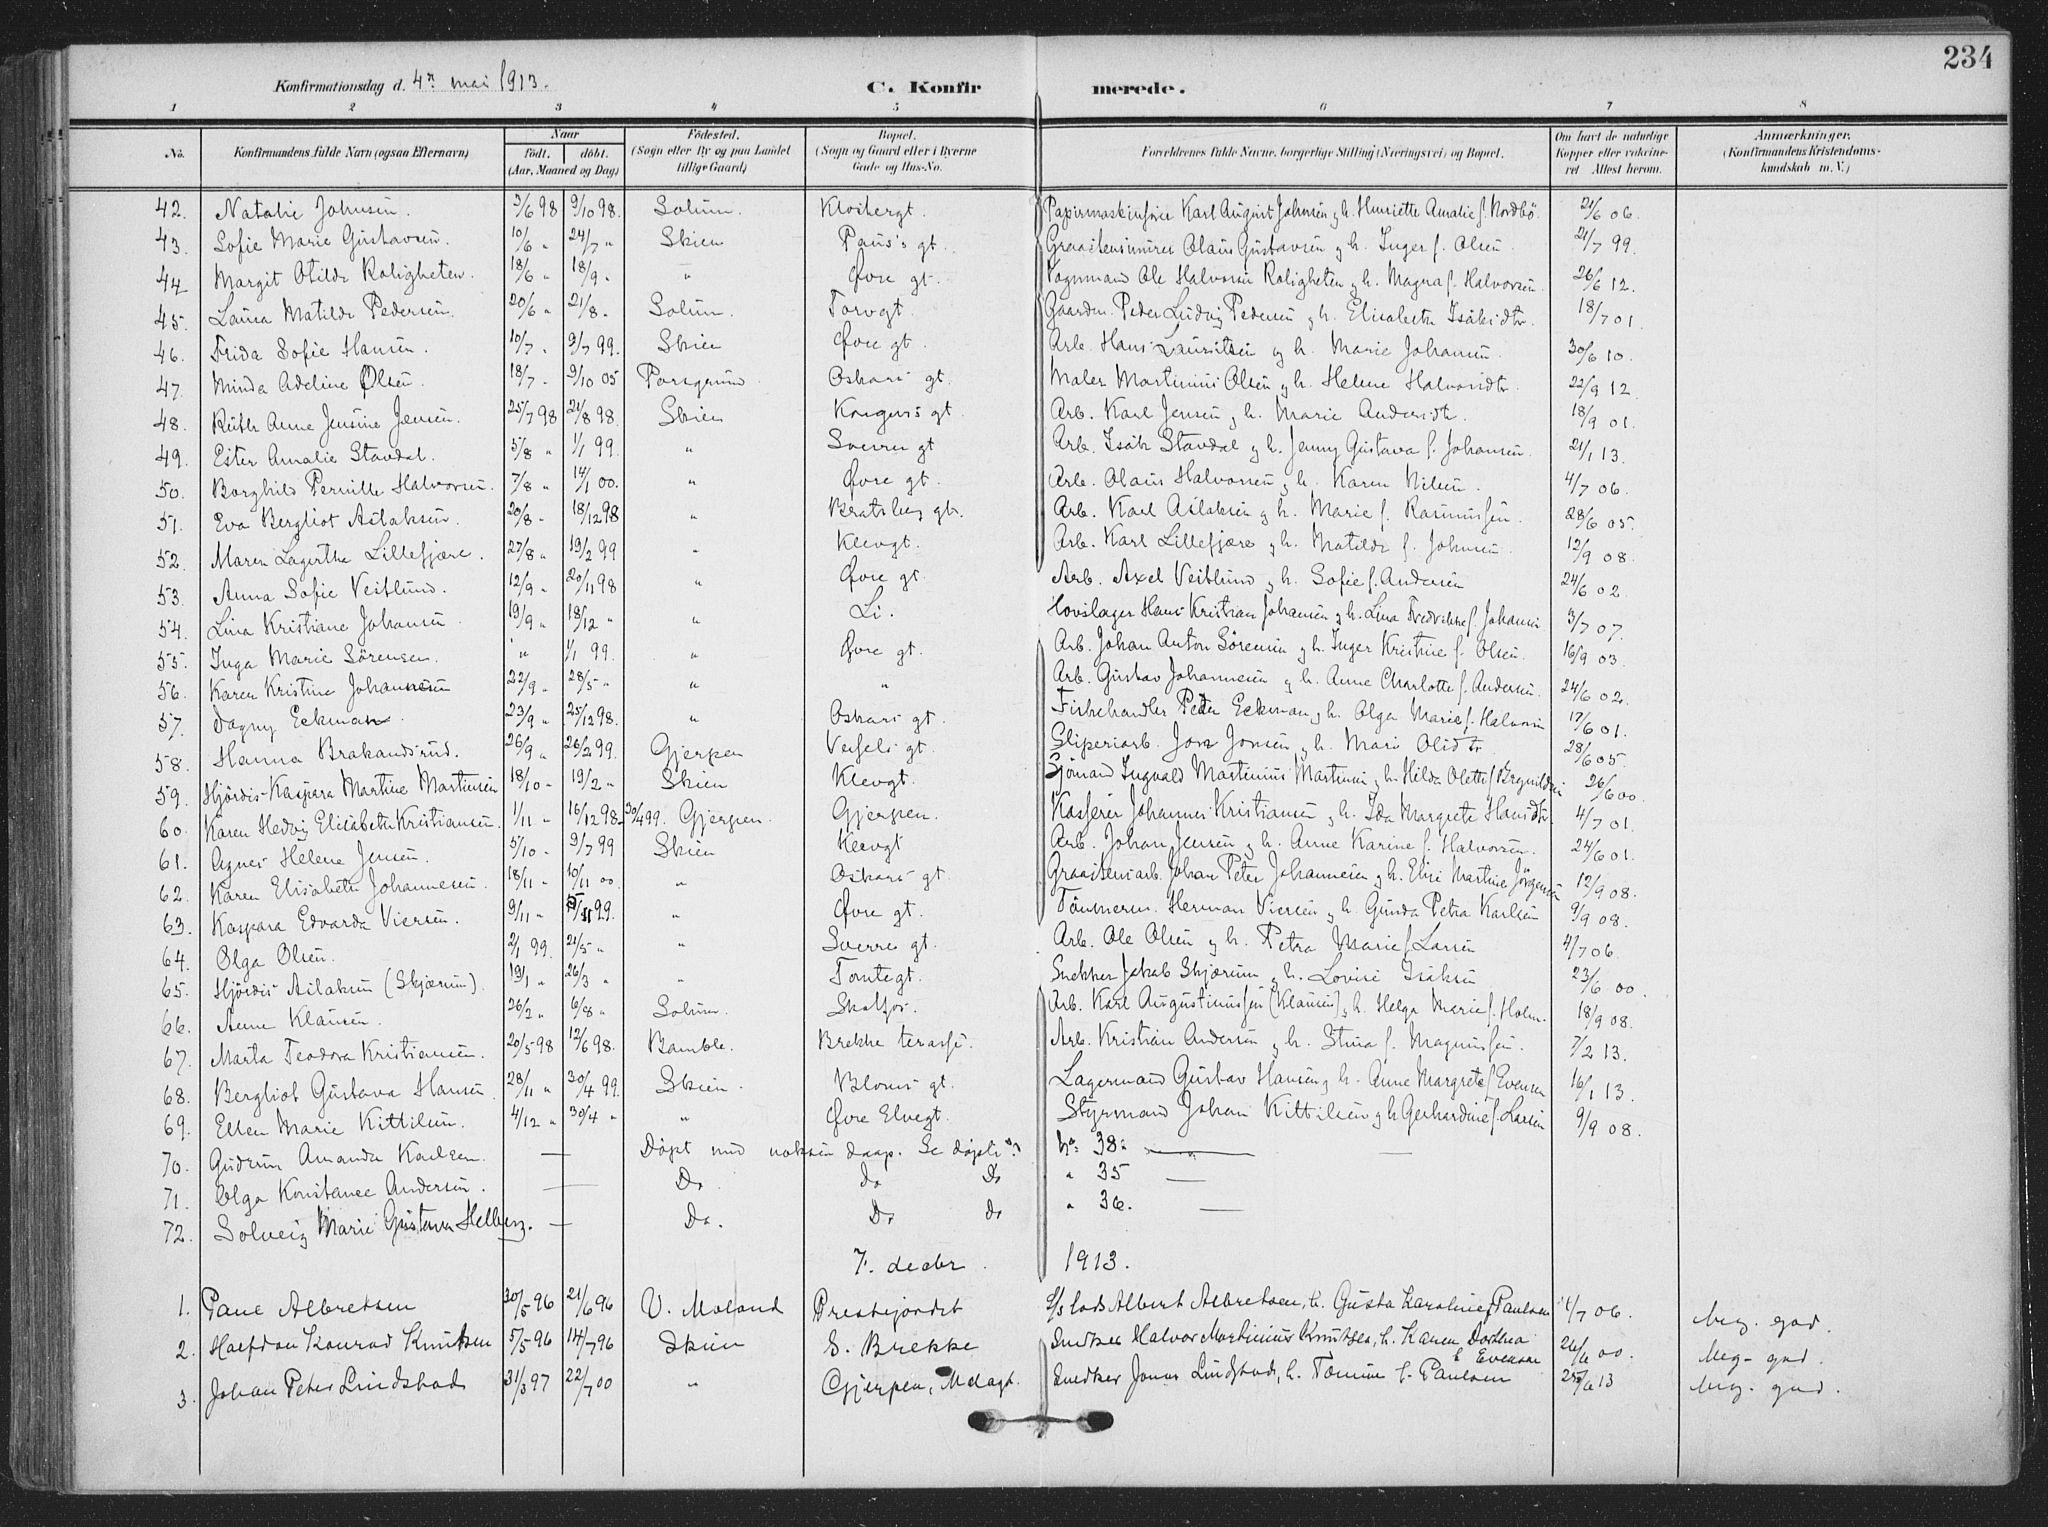 234
Konfirmationsdag d. 4de mai 1913.
C. Konfirmerede.
1 2 3 4 5 6 7 8
No. Konfirmandens fulde Navn (ogsaa Efternavn) Naar født. døbt. (Aar, Maaned og Dag) Fødested. (Sogn eller By og paa Landet tillige Gaard) Bopæl. (Sogn og Gaard eller i Byerne Gade og Hus-No. Forældrenes fulde Navne, borgerlige Stilling (Næringsvei) og Bopæl. Om havt de naturlige Kopper eller vakcineret Attest herom. Anmærkninger. (Konfirmandens Kristendomskundskab m. V.)
42. Natalie Johnsen. 3/6 98 9/10 98. Solum. Klostergt. Papirmaskinfører Karl August Johnsen g. h. Henriette Amalie f. Nordbö. 21/6 06.
43. Sofie Marie Gustavsen. 10/6 " 24/7 " Skien Paus's gt. Graastensmurer Olaus Gustavsen g. h. Inger f. Olsen. 21/7 99.
44 Margit Otilde Roligheten. 18/6 " 18/9 " " Øvre gt. Vognmand Ole Halvorsen Roligheten g. h. Magna f. Halvorsen. 26/6 12.
45. Laura Matilde Pedersen. 20/6 " 21/8 " Solum. Torvgt Gaardm. Peder Ludvig Pedersen g. h. Elisabeth Isaksdtr. 18/7 01.
46. Frida Sofie Hansen. 10/7 " 9/7 99. Skien Øvre gt. Arb. Hans Lauritsen g. h. Marie Johansen. 30/6 10.
47. Minda Adeline Olsen. 18/7 " 9/10 05 Porsgrund. Oskars gt. Maler Martinius Olsen g. h. Helene Halvorsdtr. 22/9 12.
48. Ruth Anne Jensine Jensen. 25/7 98 21/8 98. Skien Kongens gt. Arb. Karl Jensen g. h. Marie Andersdtr. 18/9 01.
49. Ester Amalie Stavdal. 5/8 " 1/1 99. " Sverres gt Arb. Isak Stavdal g. h. Jenny Gustava f. Johansen. 21/1 13.
50. Borghild Pernille Halvorsen. 7/8 " 14/1 00. " Øvre gt. Arb. Olaus Halvorsen g. h. Karen Nilsen. 4/7 06.
51. Eva Bergliot Aslaksen. 20/8 " 18/12 98 " Bratsberg gt. Arb. Karl Aslaksen g. h. Marie f. Rasmussen. 28/6 05.
52. Maren Lagertha Lillefjære. 27/8 " 19/2 99 " Klevgt. Arb. Karl Lillefjære g. h. Matilde f. Johnsen. 12/9 08.
53. Anna Sofie Vestlund. 12/9 " 20/11 98 " Øvre gt. Arb. Axel Vestlund g. h. Sofie f. Andersen 24/6 02.
54. Lina Kristiane Johansen 19/9 " 18/12 " " Li. Hovslager Hans Kristian Johansen g. h. Lina Fredrikke f. Johansen 3/7 07.
55. Inga Marie Sörensen. " 1/1 99. " Øvre gt. Arb. Johan Anton Sörensen g. h. Inger Kristine f. Olsen. 16/9 03.
56. Karen Kristine Johannesen 22/9 " 28/5 " " " Arb. Gustav Johannesen g. h. Anne Charlotte f. Andersen. 24/6 02.
57. Dagny Eckman. 23/9 " 25/12 98. " Oskars gt. Fiskehandler Peder Eckman g. h. Olga Marie f. Halvorsen 17/6 01.
58. Hanna Brakandsrud. 26/9 " 26/2 99. Gjerpen Vessels gt. Sliperiarb. Jon Jonsen g. h. Mari Olsdtr 28/6 05.
59. Hjördis Kaspara Martine Martinsen 18/10 " 19/2 " Skien Klevgt. Sjömand Ingvald Martinius Martinsen g. h. Hilda Olette f. 26/6 00.
60. Karen Hedvig Elisabeth Kristiansen. 1/11 " 16/12 98 - 30/4 99. Gjerpen. Gjerpen. Kasserer Johannes Kristiansen g. h. Ida Margrete Hansdtr. 4/7 01.
61. Agnes Helene Jensen. 5/10 " 9/7 99 Skien Klevgt Arb. Johan Jensen g. h. Anne Karine f. Halvorsen. 24/6 01.
62. Karen Elisabeth Johannesen. 18/11 " 10/11 00. " Oskars gt. Graastensarb. Johan Peter Johannesen g. h. Elise Martine Jörgensen 12/9 08.
63. Kaspara Edvarda Viersen. 9/11 " 99. " Øvre gt. Tömmerm. Herman Viersen g. h. Gunda Petra Karlsen 9/9 08.
64. Olga Olsen. 2/1 99. 21/5 " " Sverres gt. Arb. Ole Olsen g. h. Petra Marie f. Larsen 4/7 06.
65. Hjördis Aslaksen (Skjærum). 19/1 " 26/3 " " Tomtegt. Snekker Jakob Skjærum g. h. Lovise Isaksen 23/6 00.
66. Anne Klausen. 26/2 " 6/8 " Solum. Skotfos. Arb. Karl Augustinussen (Klausen) g. h. Helga Marie f. Holm. 18/9 08.
67. Marta Teodora Kristiansen. 20/5 98 12/6 98. Bamble. Brekke terasse. Arb. Kristian Andersen g. h. Stina f. Magnussen. 7/2 13.
68. Bergliot Gustava Hansen 28/11 " 30/4 99. Skien. Bloms gt. Lagermand Gustav Hansen g. h. Anne Margrete f. Evensen 16/1 13.
69. Ellen Marie Kittilsen. 4/12 " 30/4 " " Øvre Elvegt. Styrmand Johan Kittilsen g. h. Gerhardine f. Larsen 9/9 08.
70. Gudrun Amanda Karlsen. — Døpt med voksen daap. Se døpte No 38. —
71. Olga Konstance Andersen. — Do. Do Do " 35 —
72. Solveig Marie Gustava Hellberg. — Do. Do do " 36. —
7. decbr. 1913.
1. Paul Albretsen 30/5 96 21/6 96 V. Moland Prestejordet S/s Lods Albert Albretsen, h. Gusta Karoline f. Paulsen 4/7 06. Meg. god.
2. Halfdan Konrad Knutsen 5/5 96 14/7 96 Skien S. Brekke Snedker Halvor Martinius Knutsen, h. Karen Dorthea f. Evensen 26/6 00. Meg. god.
3. Johan Peter Lindstad 31/3 97 22/7 00 " Gjerpen, Snedker Jonas Lindstad, h. Tomine f. Paulsen 25/6 13 Meg. god.